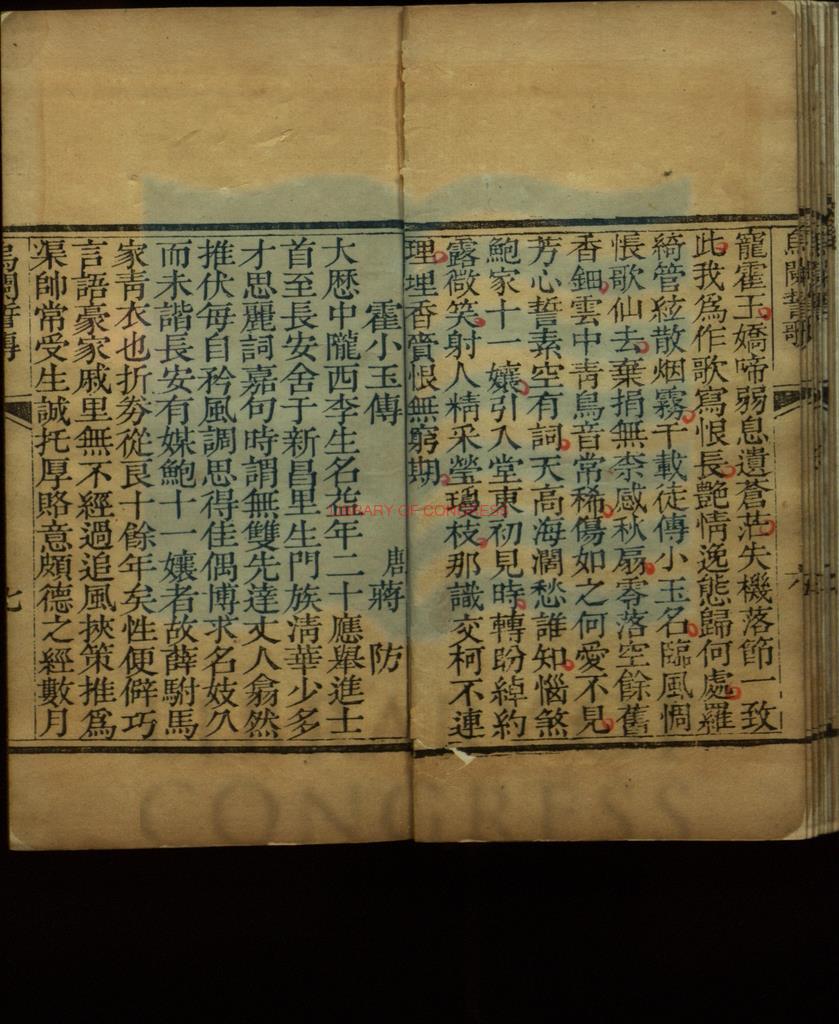 烏闌誓歌
六
寵霍王嬌啼弱息遺蒼茫失機落節一致
此我爲作歌寫恨長艷情逸態歸何處羅
綺管絃散烟霧千載徒傳小玉名臨風惆
悵歌仙去棄捐無柰感秋扇零落空餘舊
香鈿雲中靑鳥音常稀傷如之何愛不見
芳心誓素空有詞天高海濶愁誰知惱煞
鮑家十一孃引入堂東初見時轉盼綽約
露微笑射人精采瑩瓊枝那識交柯不連
理埋香賫恨無窮期
霍小玉傳
唐蔣 防
大歷中隴西李生名益年二十應舉進士
首至長安舍于新昌里生門族淸華少多
才思麗詞嘉句時謂無雙先達丈人翕然
推伏每自矜風調思得佳偶博求名妓久
而未諧長安有媒鮑十一孃者故薛駙馬
家靑衣也折劵從良十餘年矣性便僻巧
言語豪家戚里無不經過追風挾策推爲
渠帥常受生誠托厚賂意頗德之經數月
烏闌誓傳
七
LIBRARY OF CONGRESS
CONGRESS